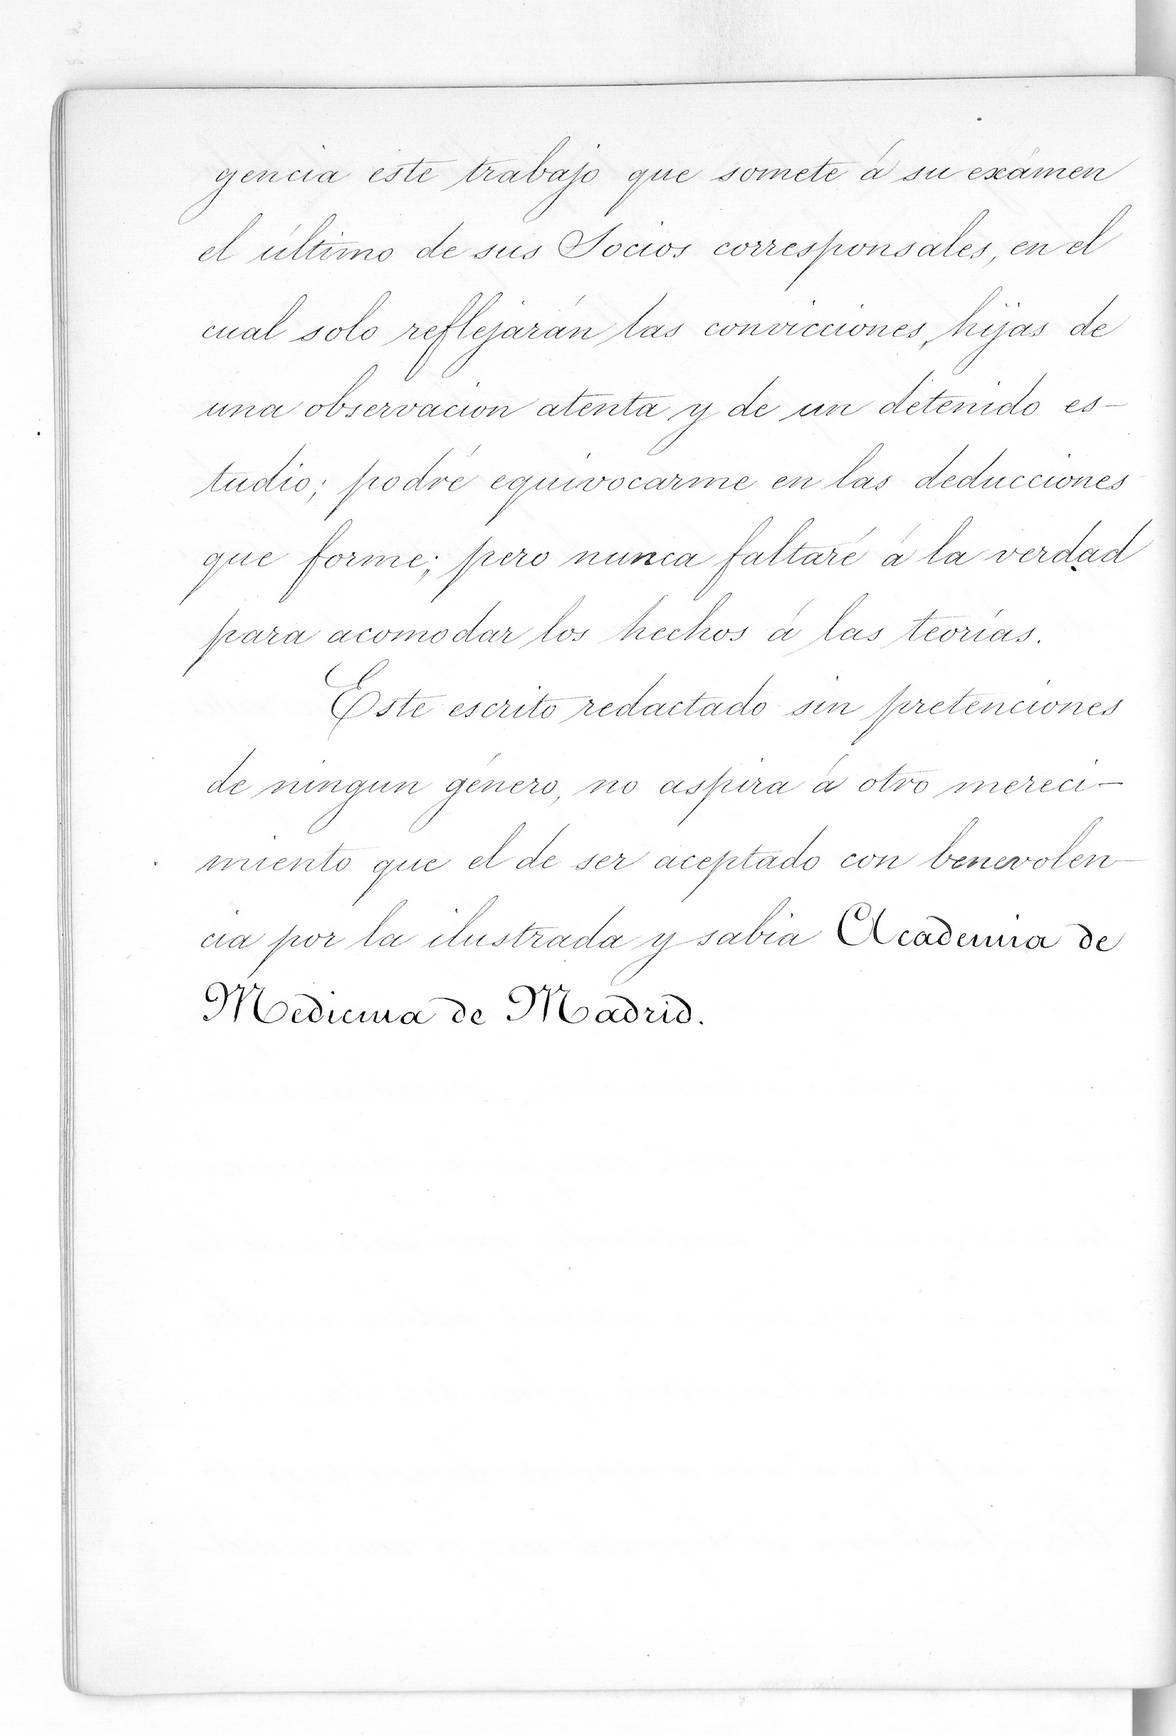 gencia este trabajo que somete á su exámen
el último de sus Socios corresponsales, en el
cual solo reflejarán las convicciones, hijas de
una observacion atenta y de un detenido es-
tudio; podré equivocarme en las deducciones
que forme; pero nunca faltaré á la verdad
para acomodar los hechos á las teorías.
Este escrito redactado sin pretenciones
de ningun género, no aspira á otro mereci-
miento que el de ser aceptado con benevolen-
cia por la ilustrada y sabia Academia de
Medicina de Madrid.